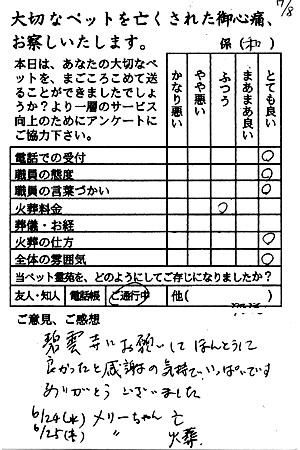 17/8
大切なペットを亡くされた御心痛、
お察しいたします。 係(和)
本日は、あなたの大切なペットを、まごころこめて送ることができましたでしょうか?より一層のサービス向上のためにアンケートにご協力下さい。
かなり悪い やや悪い ふつう まあまあ良い とても良い
電話での受付 ○
職員の態度 ○
職員の言葉づかい ○
火葬料金 ○
葬儀・お経
火葬の仕方 ○
全体の雰囲気 ○
当ペット霊苑を、どのようにしてご存じになりましたか?
友人・知人 電話帳 ご通行中 他( )
ご意見、ご感想
碧雲寺にお願いして ほんとうに
良かったと感謝の気持でいっぱいです
ありがとう ございました
6/24(水) メリーちゃん 亡
6/25(木) 〃 火葬